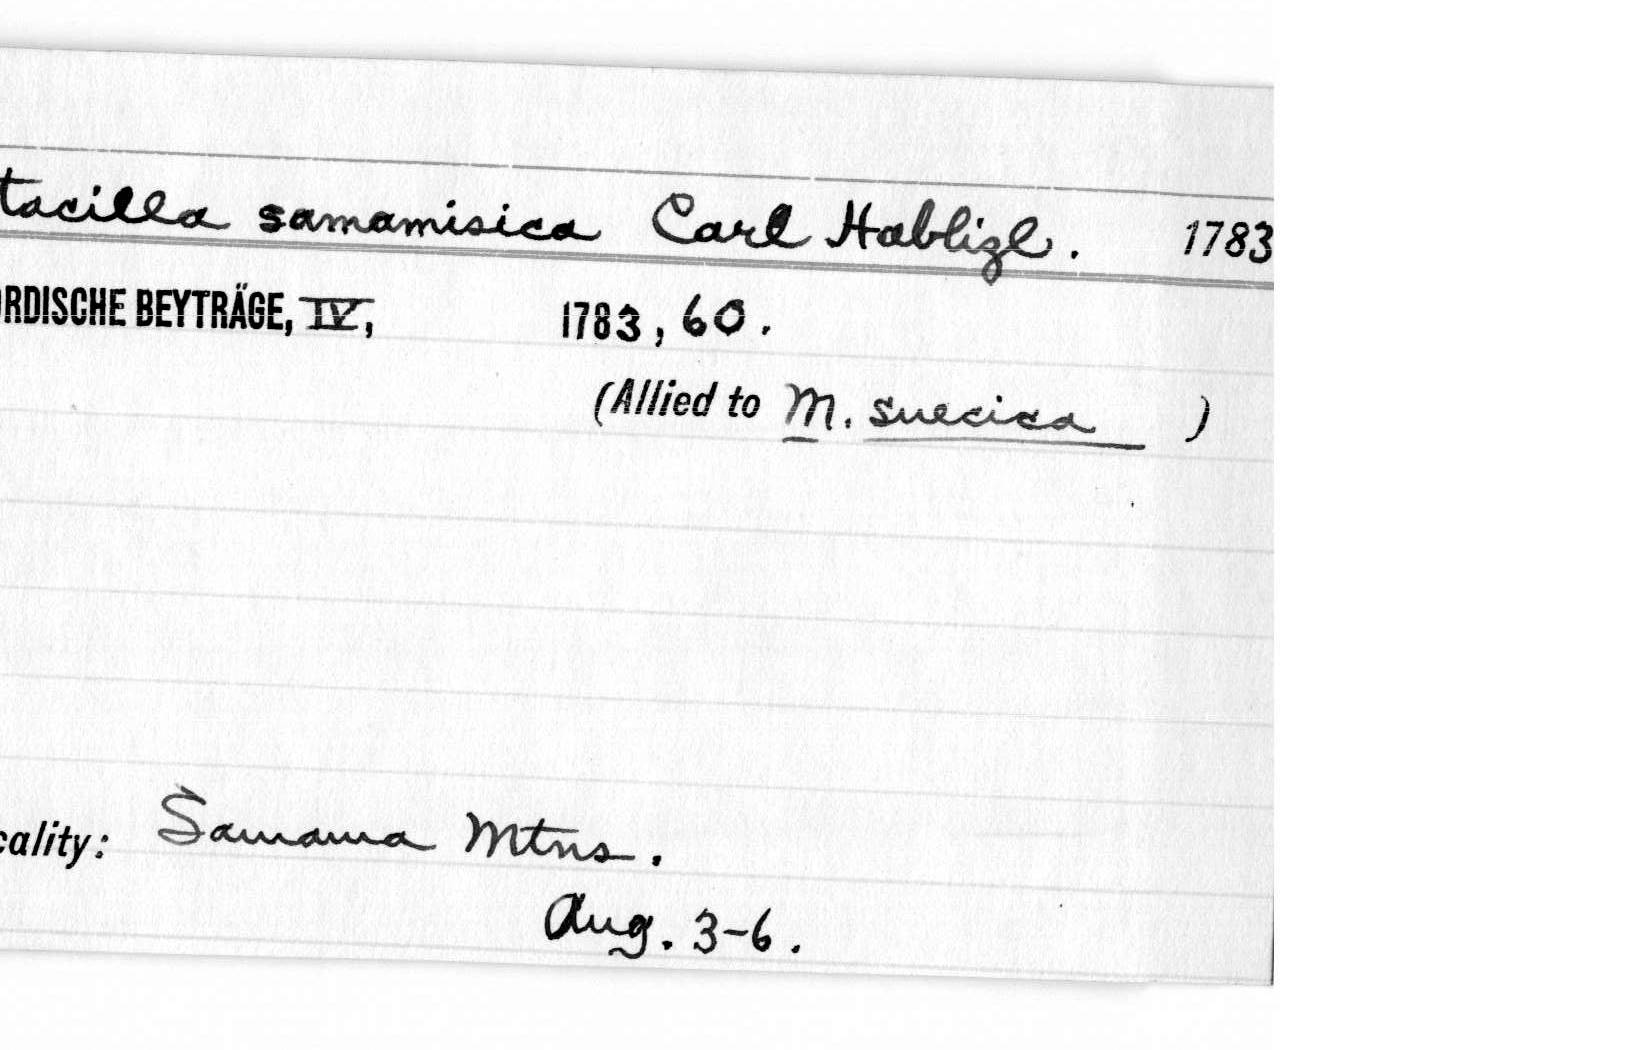 tacilla samamisica Carl Hablizl. 1783
RDISCHE BEYTRÄGE, IV, 1783, 60.
(Allied to M. suecica )
cality: Samama Mtns.
Aug. 3-6.